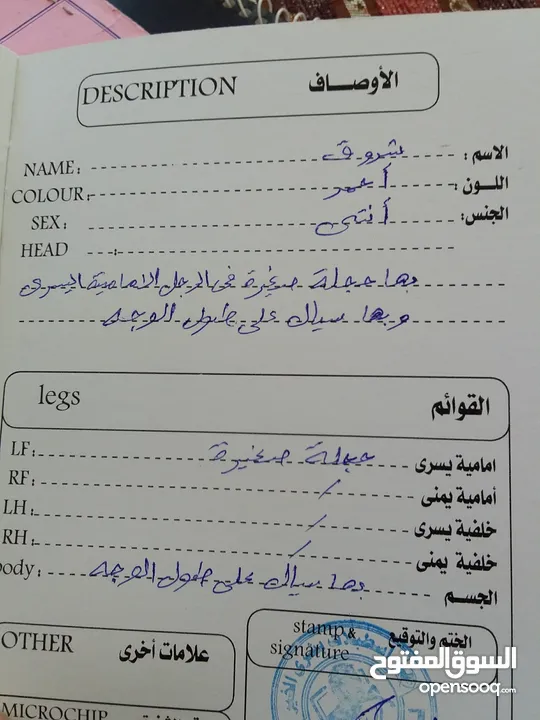 DESCRIPTION الأوصاف
NAME: شروق الاسم :
COLOUR: أحمر اللون :
SEX: أنثى الجنس:
HEAD :
بها حجلة صغيرة في الرجل الامامية اليسرى
وبها سيال على طول الوجه
legs القوائم
LF: حجلة صغيرة امامية يسرى
RF: / أمامية يمنى
LH: / خلفية يسرى
RH: / خلفية يمنى
body: بها سيال على طول الوجه الجسم
stamp & signature الختم والتوقيع
OTHER علامات أخرى
MICROCHIP
السوق المفتوح
opensooq.com